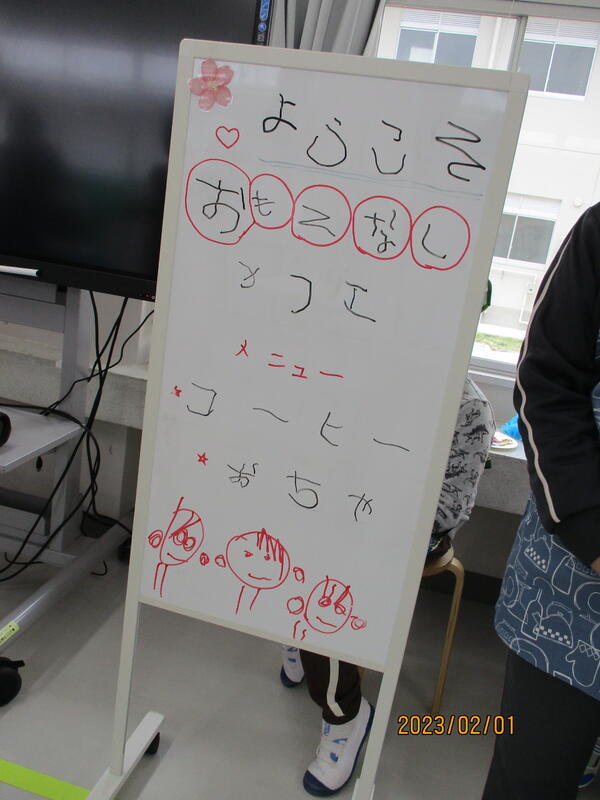 ようこそ
おもてなし
カフェ
メニュー
コーヒー
おちゃ
2023/02/01